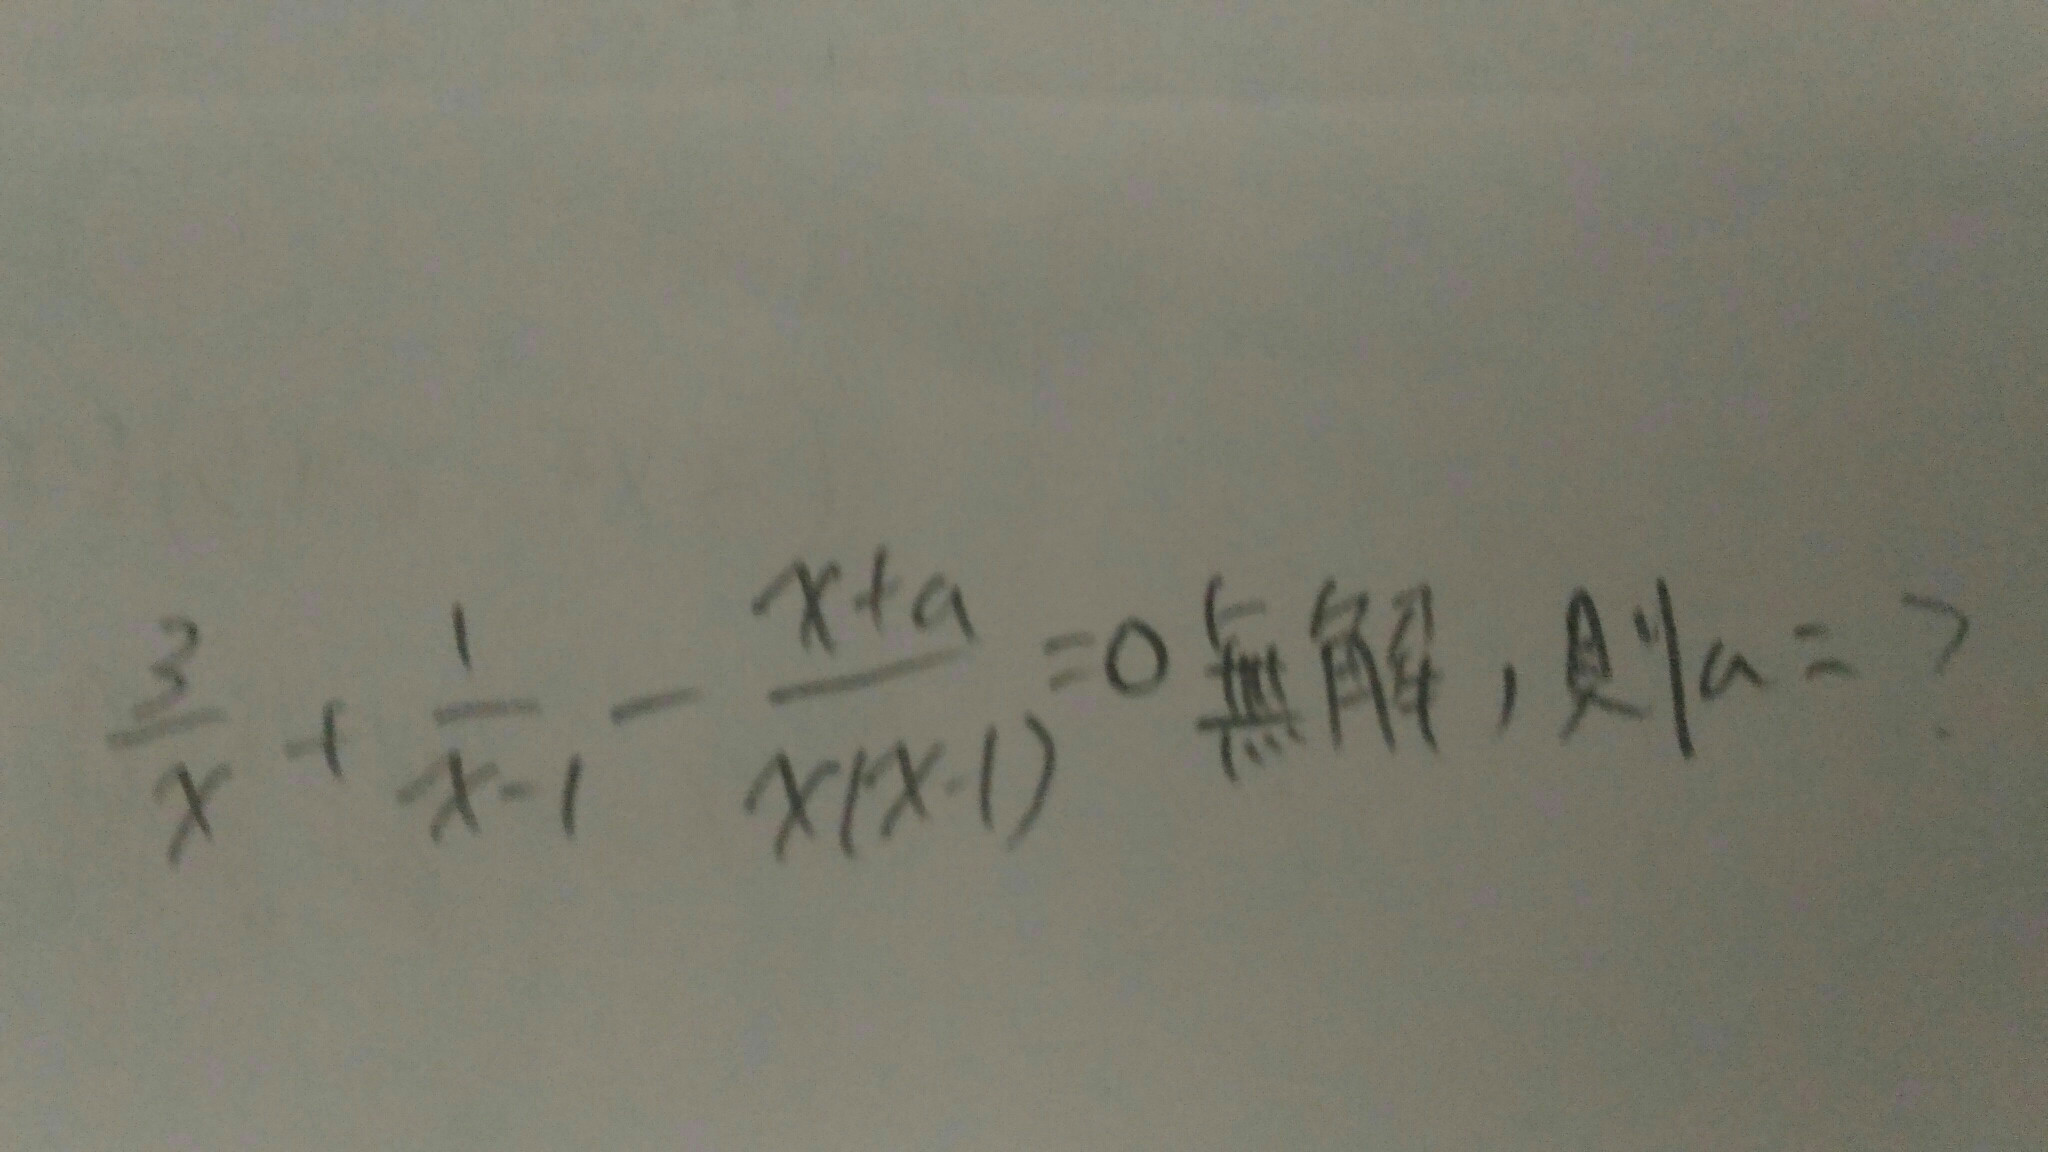 3/x + 1/(x-1) - (x+a)/(x(x-1)) =0 無解，则a=?